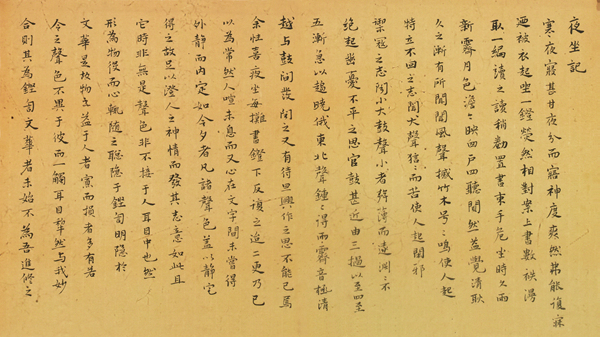 夜坐記
寒夜寢甚甘夜分而寤神度爽然弗能復寐
迺被衣起坐一鐙熒然相對案上書數袟漫
取一編讀之讀稍勌置書束手危坐時久雨
新霽月色澹〻映戶四聽闃然蓋覺清耿
久之漸有所聞聞風聲撼竹木号〻鳴使人起
特立不回之志聞犬聲狺〻而苦使人起閑邪
禦寇之志聞小大鼓聲小者薄而遠渊〻不
絕起幽憂不平之思官鼓甚近由三撾以至四至
五漸急以趨曉俄東北聲鍾〻得雨霽音極清
越與鼓間發聞之又有待旦興作之思不能已焉
余性喜夜坐每攤書鐙下反復之迨二更乃已
以為常然人喧未息而又心在文字間未嘗得
外靜而內定如今夕者凡諸聲色蓋以靜定
得之故足以澄人之神情而發其志意如此且
它時非無是聲色非不接于人耳目中也然
形為物役而心輒隨之聰隱于鏗訇明隱於
文華是故物之益于人者寡而損者多有若
今之聲色不異于彼而一觸耳目犂然與我妙
合則其為鏗訇文華者未始不為吾進修之